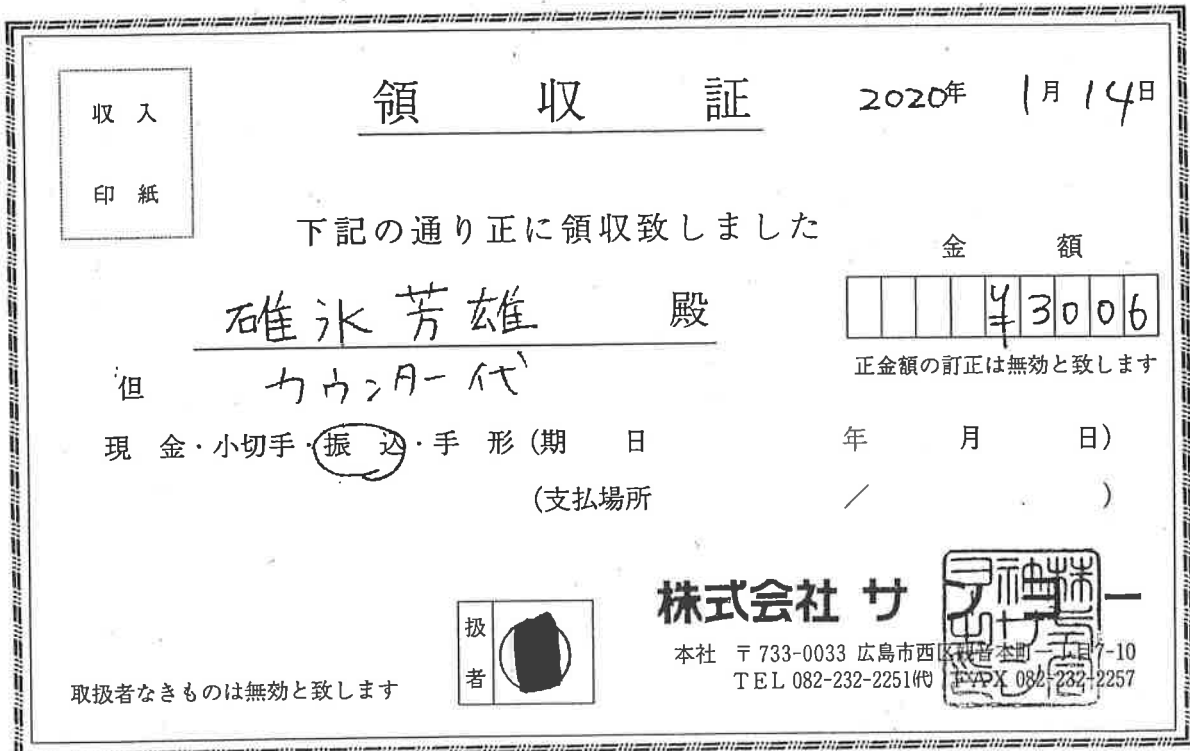 収入
印紙
領収証
2020年 1月 14日
下記の通り正に領収致しました
金額
碓氷芳雄 殿
¥3006
正金額の訂正は無効と致します
但 カウンター代
現金・小切手・振込・手形(期日 年 月 日)
(支払場所 / )
扱者
株式会社 サ ー
本社 〒733-0033 広島市西区観音本町一丁目7-10
TEL 082-232-2251(代) FAX 082-232-2257
取扱者なきものは無効と致します